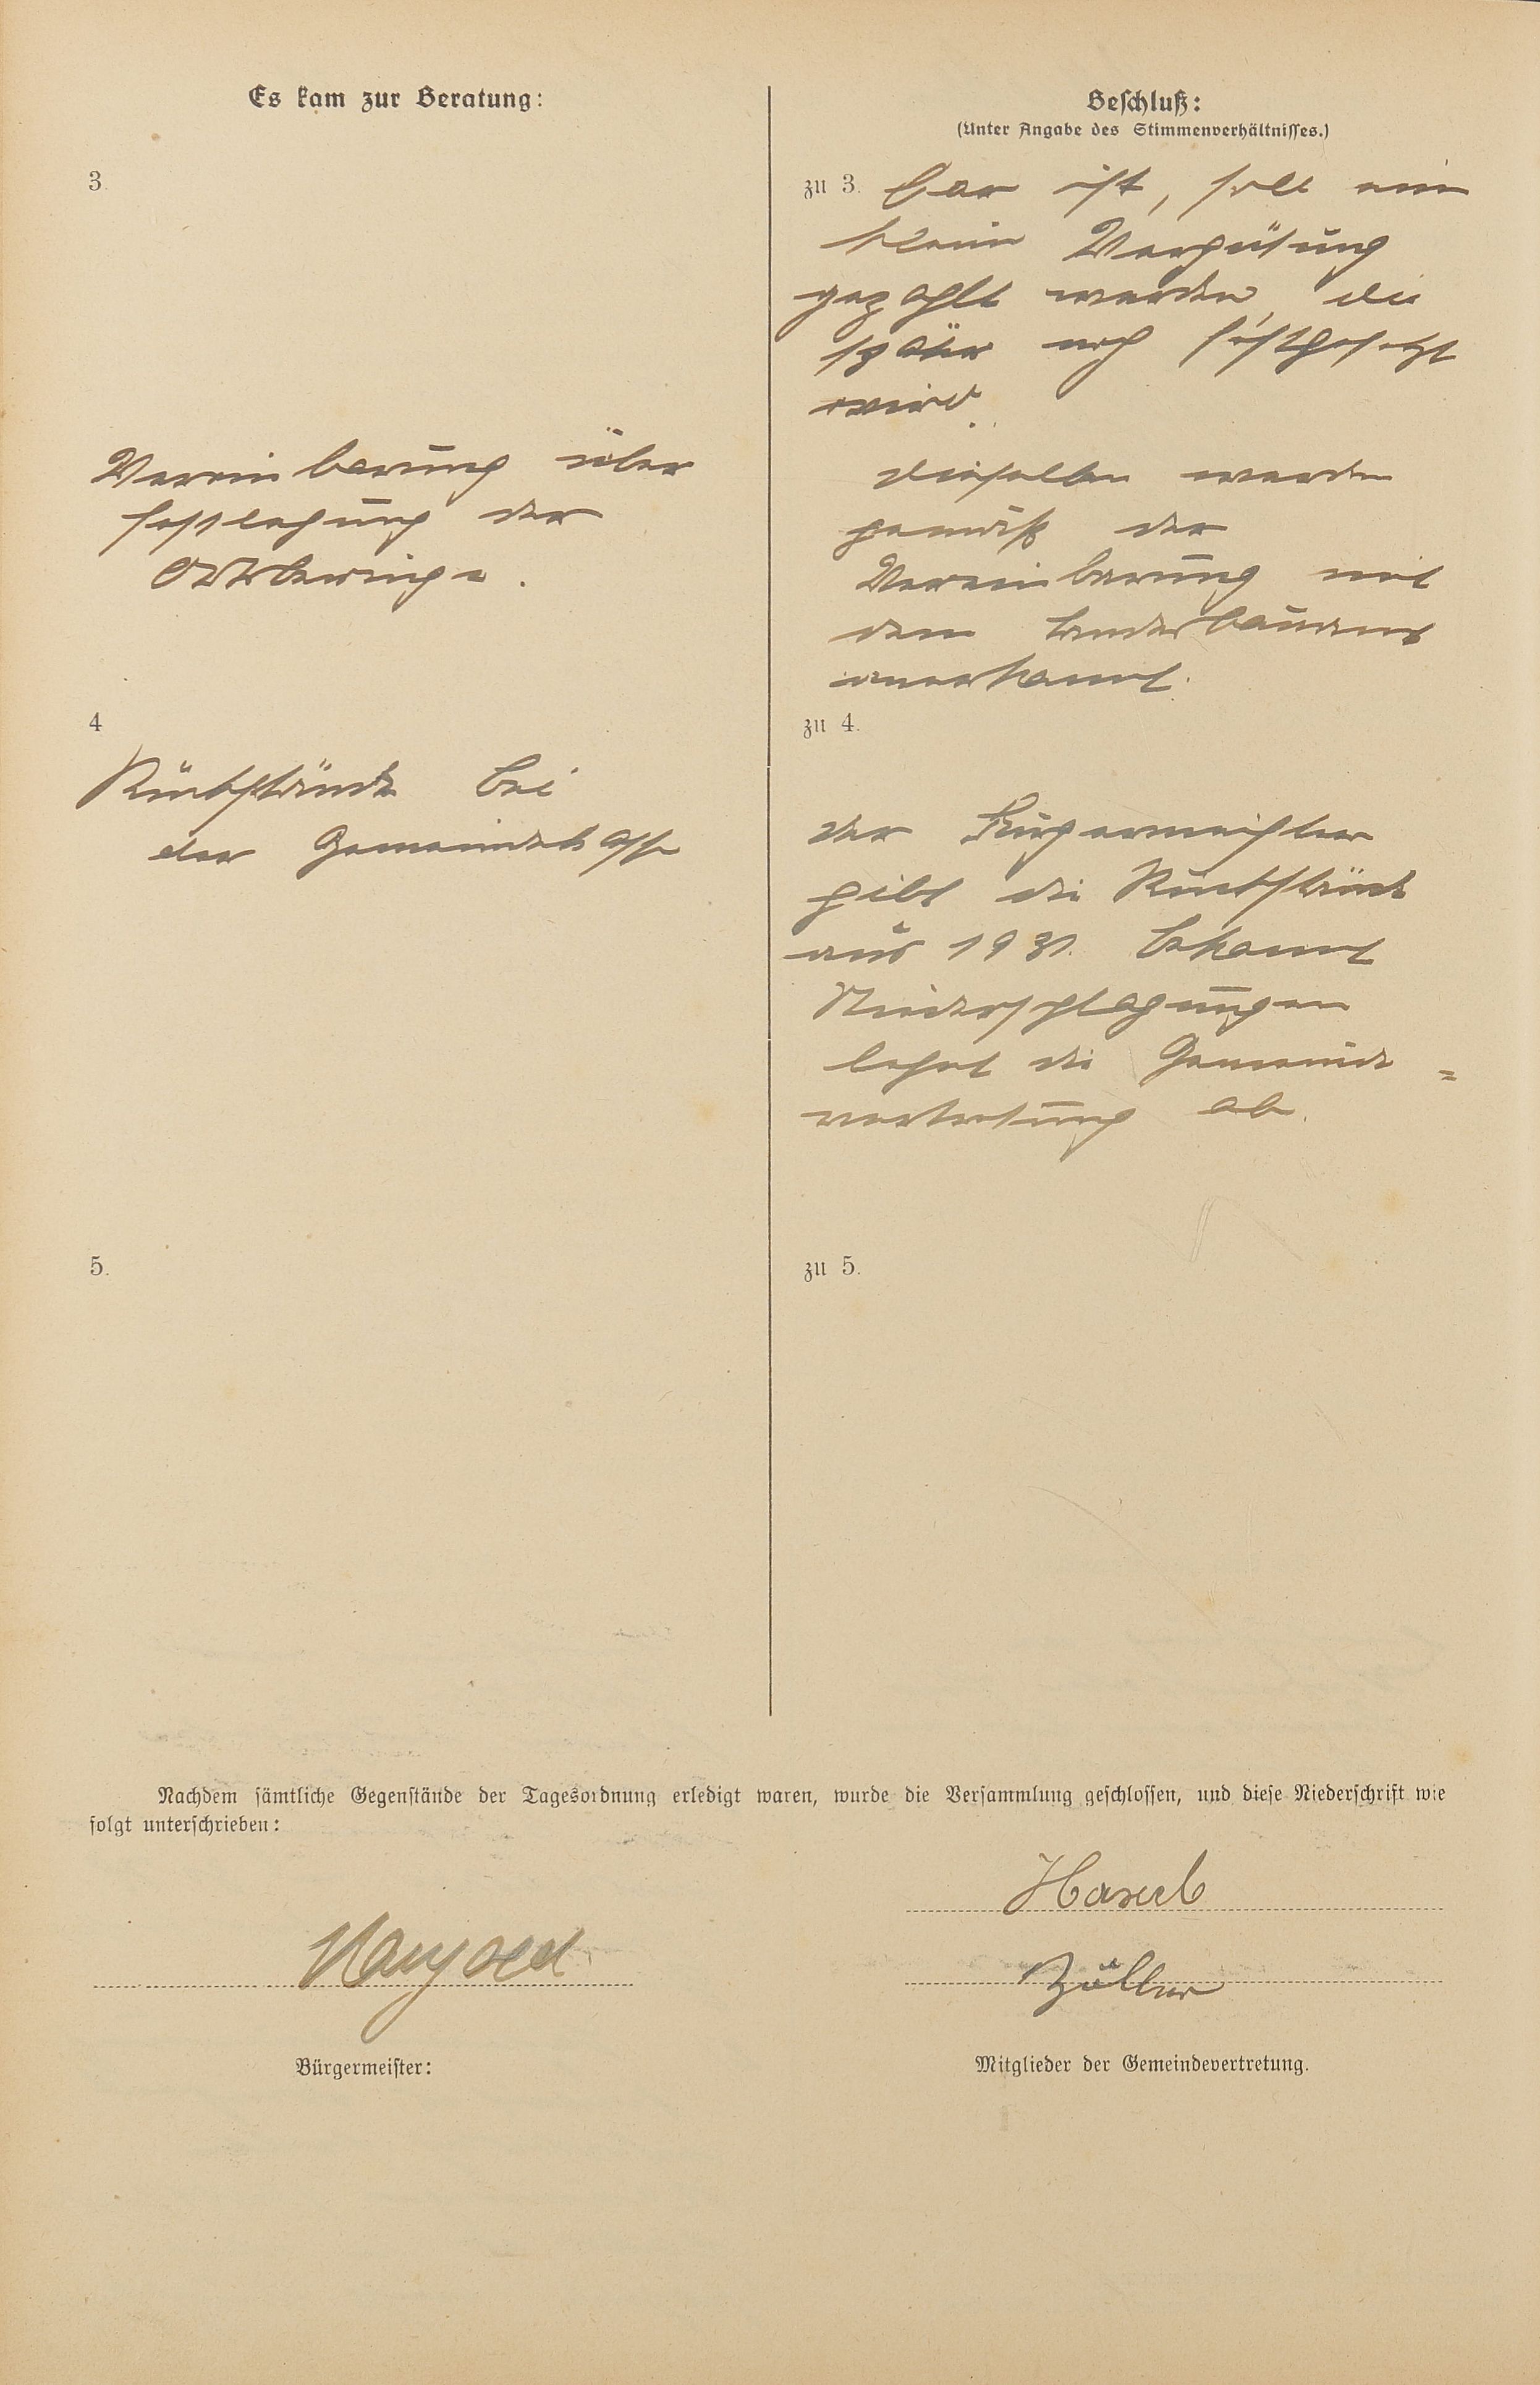 Es kam zur Beratung:
3.
Vereinbarung über
Festlegung der
Ortsberinge.
4
Rückstände bei
der Gemeindekasse
5.
Beschluß:
(Unter Angabe des Stimmenverhältnisses.)
zu 3. bar ist, soll eine
kleine Vergütung
gezahlt werden, die
später noch festgesetzt
wird.
Dieselben werden
gemäß der
Vereinbarung mit
dem Landesbauamt
anerkannt.
zu 4.
Der Bürgermeister
gibt die Rückstände
aus 1931. bekannt
Niederschlagungen
lehnt die Gemeinde=
vertretung ab.
zu 5.
Nachdem sämtliche Gegenstände der Tagesordnung erledigt waren, wurde die Versammlung geschlossen, und diese Niederschrift wie
folgt unterschrieben:
Zöller
Bürgermeister:
Mitglieder der Gemeindevertretung.